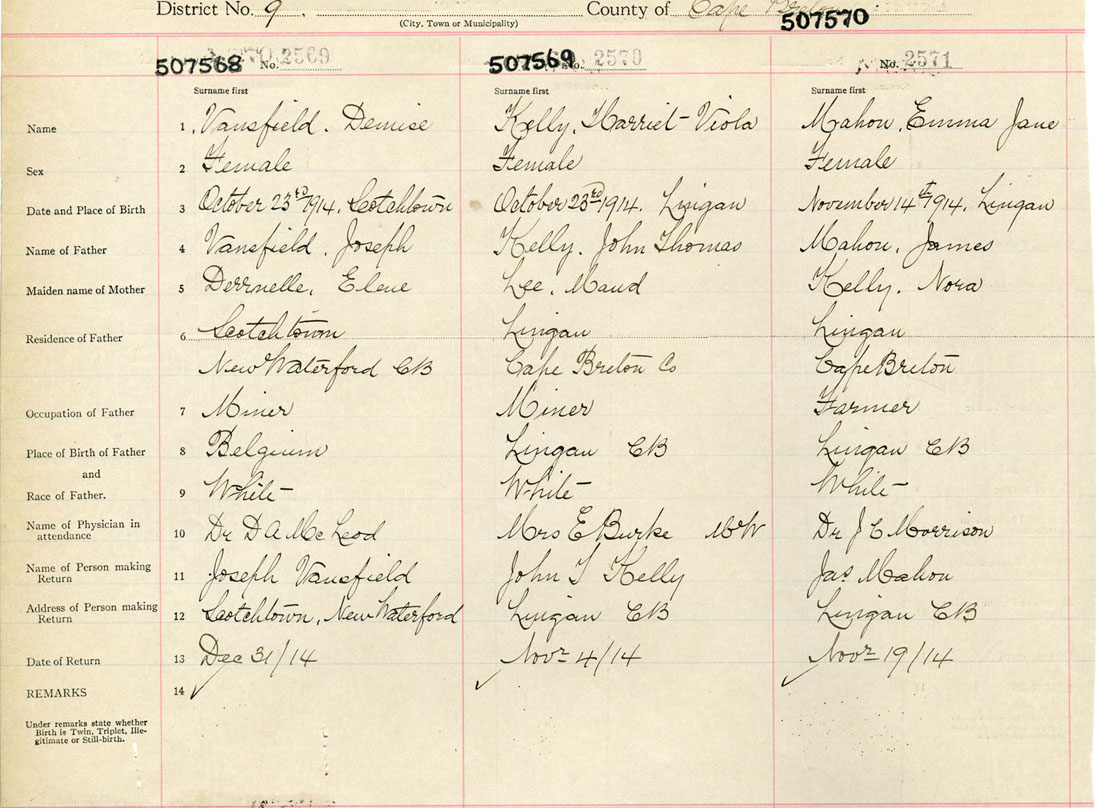 District No. 9 County of Cape Breton
(City, Town or Municipality)
507568 No. 2569 507569 No. 2570 507570 No. 2571
Surname first Surname first Surname first
Name 1 Vansfield. Denise Kelly. Harriet Viola Mahon. Emma Jane
Sex 2 Female Female Female
Date and Place of Birth 3 October 23rd 1914. Scotchtown October 23rd 1914. Lingan November 14th 1914. Lingan
Name of Father 4 Vansfield. Joseph Kelly. John Thomas Mahon. James
Maiden name of Mother 5 Derrnelle. Elene Lee. Maud Kelly. Nora
Residence of Father 6 Scotchtown Lingan Lingan
New Waterford CB Cape Breton Co Cape Breton
Occupation of Father 7 Miner Miner Farmer
Place of Birth of Father 8 Belgium Lingan CB Lingan CB
and
Race of Father. 9 White White White
Name of Physician in
attendance 10 Dr D A McLeod Mrs E Burke MW Dr J C Morrison
Name of Person making
Return 11 Joseph Vansfield John T Kelly Jas Mahon
Address of Person making
Return 12 Scotchtown, New Waterford Lingan CB Lingan CB
Date of Return 13 Dec 31/14 Novr 4/14 Novr 19/14
REMARKS 14
Under remarks state whether
Birth is Twin, Triplet, Ille-
gitimate or Still-birth.